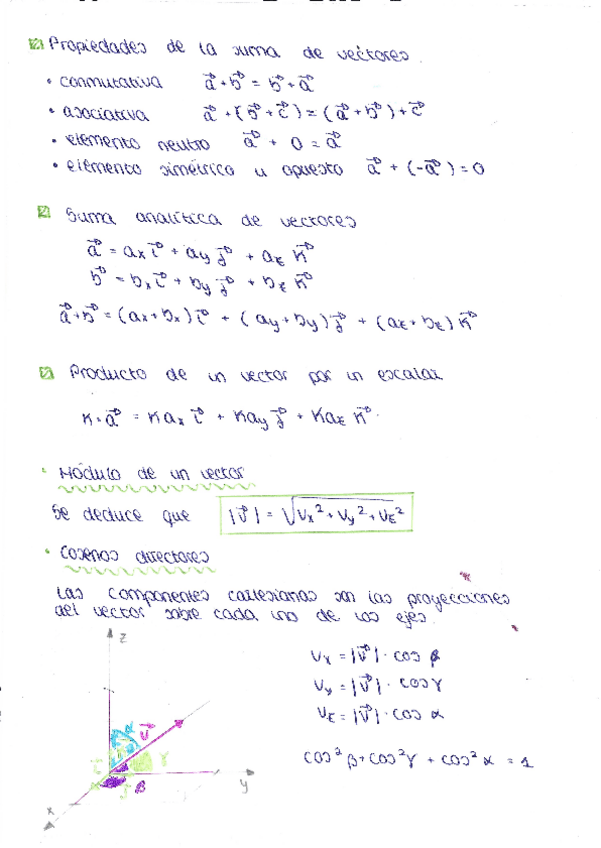 Propiedades de la suma de vectores.
• conmutativa a⃗ + b⃗ = b⃗ + a⃗
• asociativa a⃗ + (b⃗ + c⃗) = (a⃗ + b⃗) + c⃗
• elemento neutro a⃗ + 0 = a⃗
• elemento simétrico u opuesto a⃗ + (-a⃗) = 0
Suma analítica de vectores
a⃗ = ax i⃗ + ay j⃗ + az k⃗
b⃗ = bx i⃗ + by j⃗ + bz k⃗
a⃗ + b⃗ = (ax + bx) i⃗ + (ay + by) j⃗ + (az + bz) k⃗
Producto de un vector por un escalar
k · a⃗ = kax i⃗ + kay j⃗ + kaz k⃗
• Módulo de un vector
Se deduce que |v⃗| = √vx² + vy² + vz²
• Cosenos directores
Las componentes cartesianas son las proyecciones
del vector sobre cada uno de los ejes.
vx = |v⃗| · cos β
vy = |v⃗| · cos γ
vz = |v⃗| · cos α
cos² β + cos² γ + cos² α = 1
z
α
v⃗
γ
β
y
x